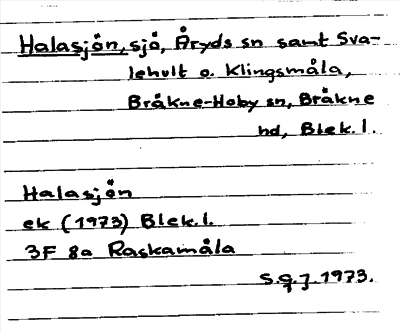 Halasjön, sjö, Åryds sn samt Sva-
lehult o. Klingsmåla,
Bräkne-Hoby sn, Bräkne
hd, Blek. l.
Halasjön
ek (1973) Blek. l.
3F 8a Raskamåla
S.G.J. 1973.